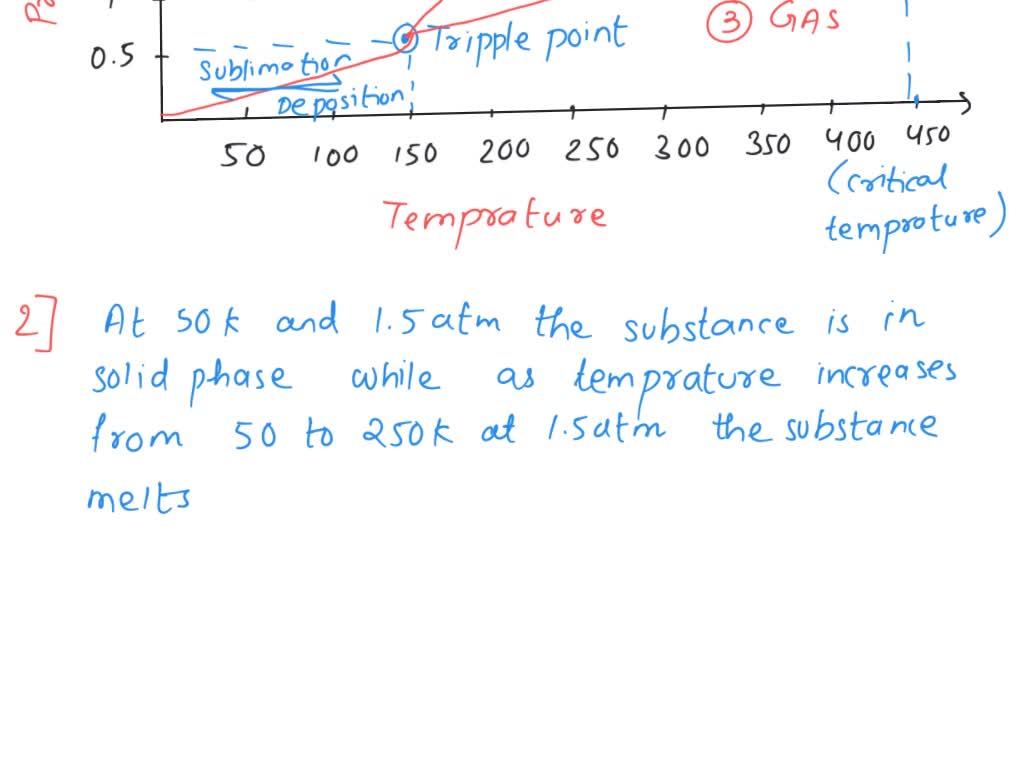 ③ GAS
Tripple point
0.5
Sublimation
Deposition
50 100 150 200 250 300 350 400 450
(critical
temprature)
Temprature
2] At 50k and 1.5atm the substance is in
solid phase while as temprature increases
from 50 to 250k at 1.5atm the substance
melts